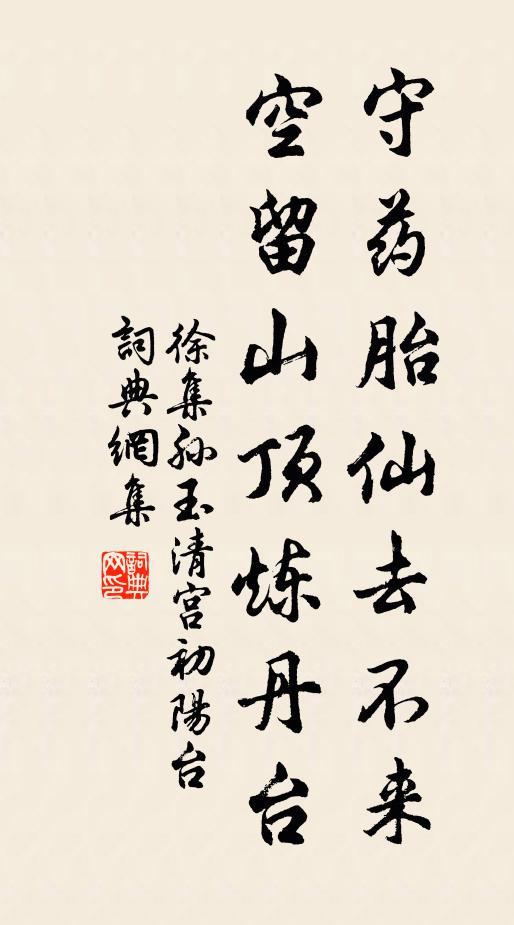 守药胎仙去不来
空留山顶炼丹台
徐集孙玉清宫初陽台
詞典網集
詞典
网印